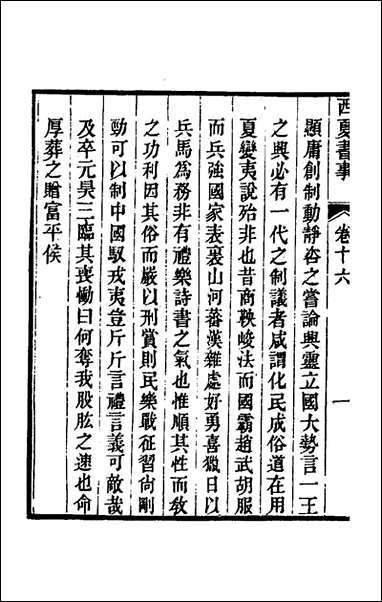 西夏書事
卷十六
一
顯庸創制動靜咨之嘗論興靈立國大勢言一王
之興必有一代之制議者咸謂化民成俗道在用
夏變夷說殆非也昔商鞅峻法而國霸趙武胡服
而兵強國家表裏山河蕃漢雜處好勇喜獵日以
兵馬為務非有禮樂詩書之氣也惟順其性而教
之功利因其俗而嚴以刑賞則民樂戰征習尚剛
勁可以制中國馭戎夷豈斤斤言禮言義可敵哉
及卒元昊三臨其喪慟曰何奪我股肱之速也命
厚葬之贈富平侯